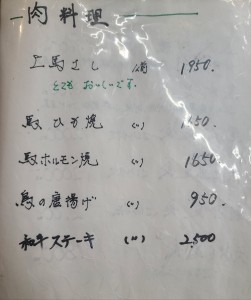 肉料理
上馬さし 1950.
とても おいしいです.
馬ひも焼 (〃) 1650.
馬ホルモン焼 (〃) 1650.
鳥の唐揚げ (〃) 950.
和牛ステーキ (〃) 2,500